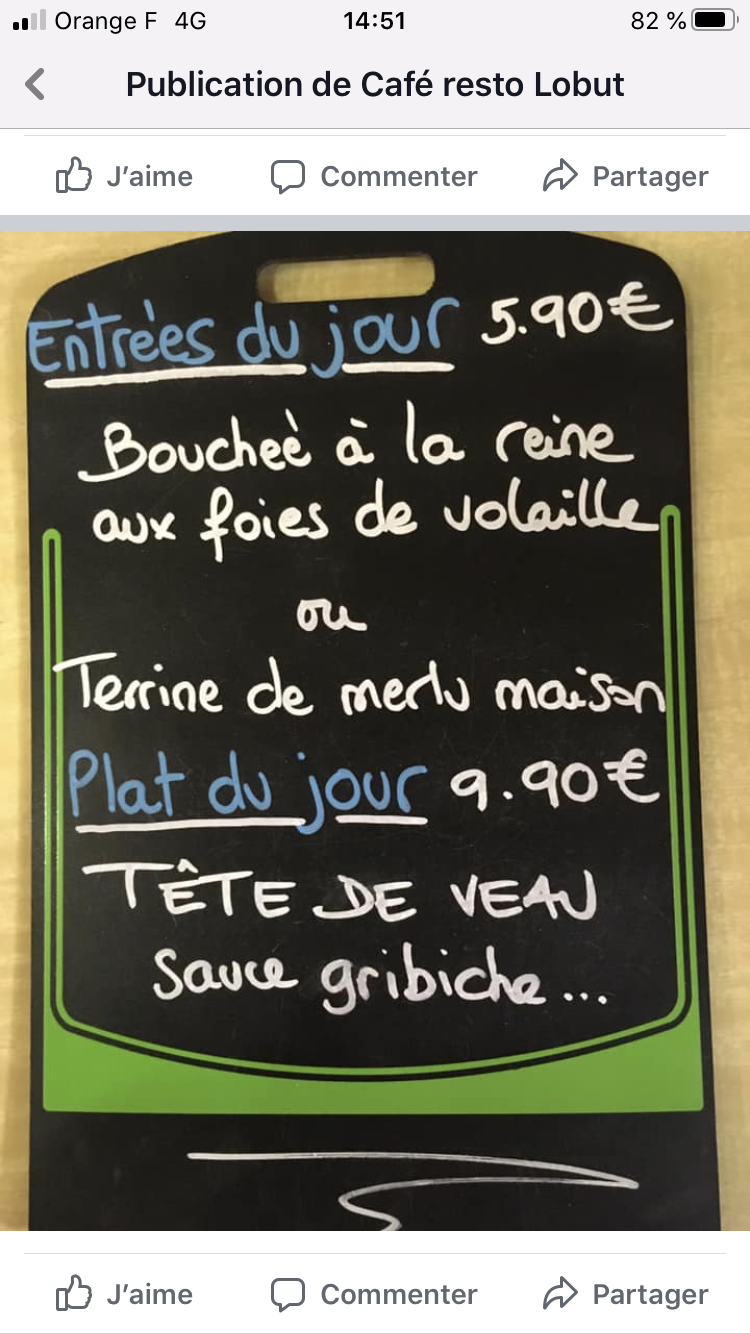 Orange F 4G 14:51 82 %
Publication de Café resto Lobut
J'aime Commenter Partager
Entrées du jour 5.90€
Boucheé à la reine
aux foies de volaille
ou
Terrine de merlu maison
Plat du jour 9.90€
TÊTE DE VEAU
Sauce gribiche...
J'aime Commenter Partager